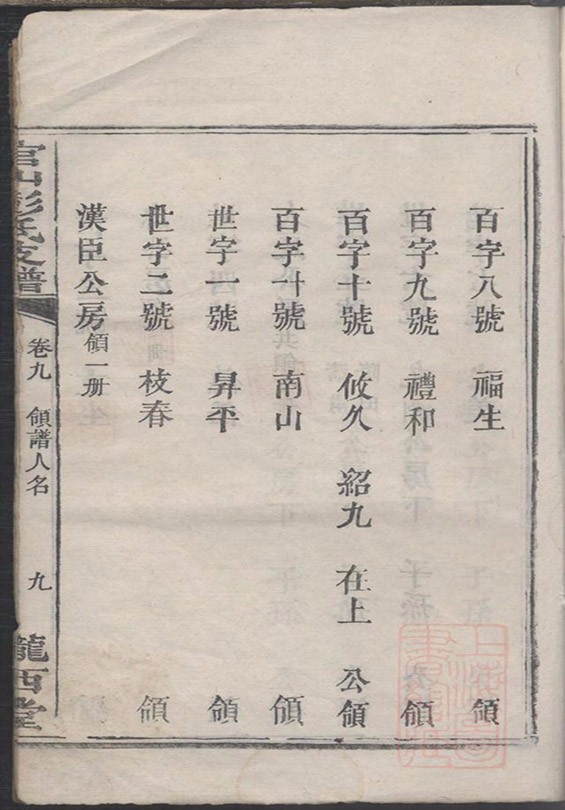 百字八號 福生 領
百字九號 禮和 領
百字十號 攸久 紹九 在上 公領
百字卄號 南山 領
世字一號 昇平 領
世字二號 枝春 領
漢臣公房領一册
官山彭氏支譜 卷九 領譜人名 九 隴西堂